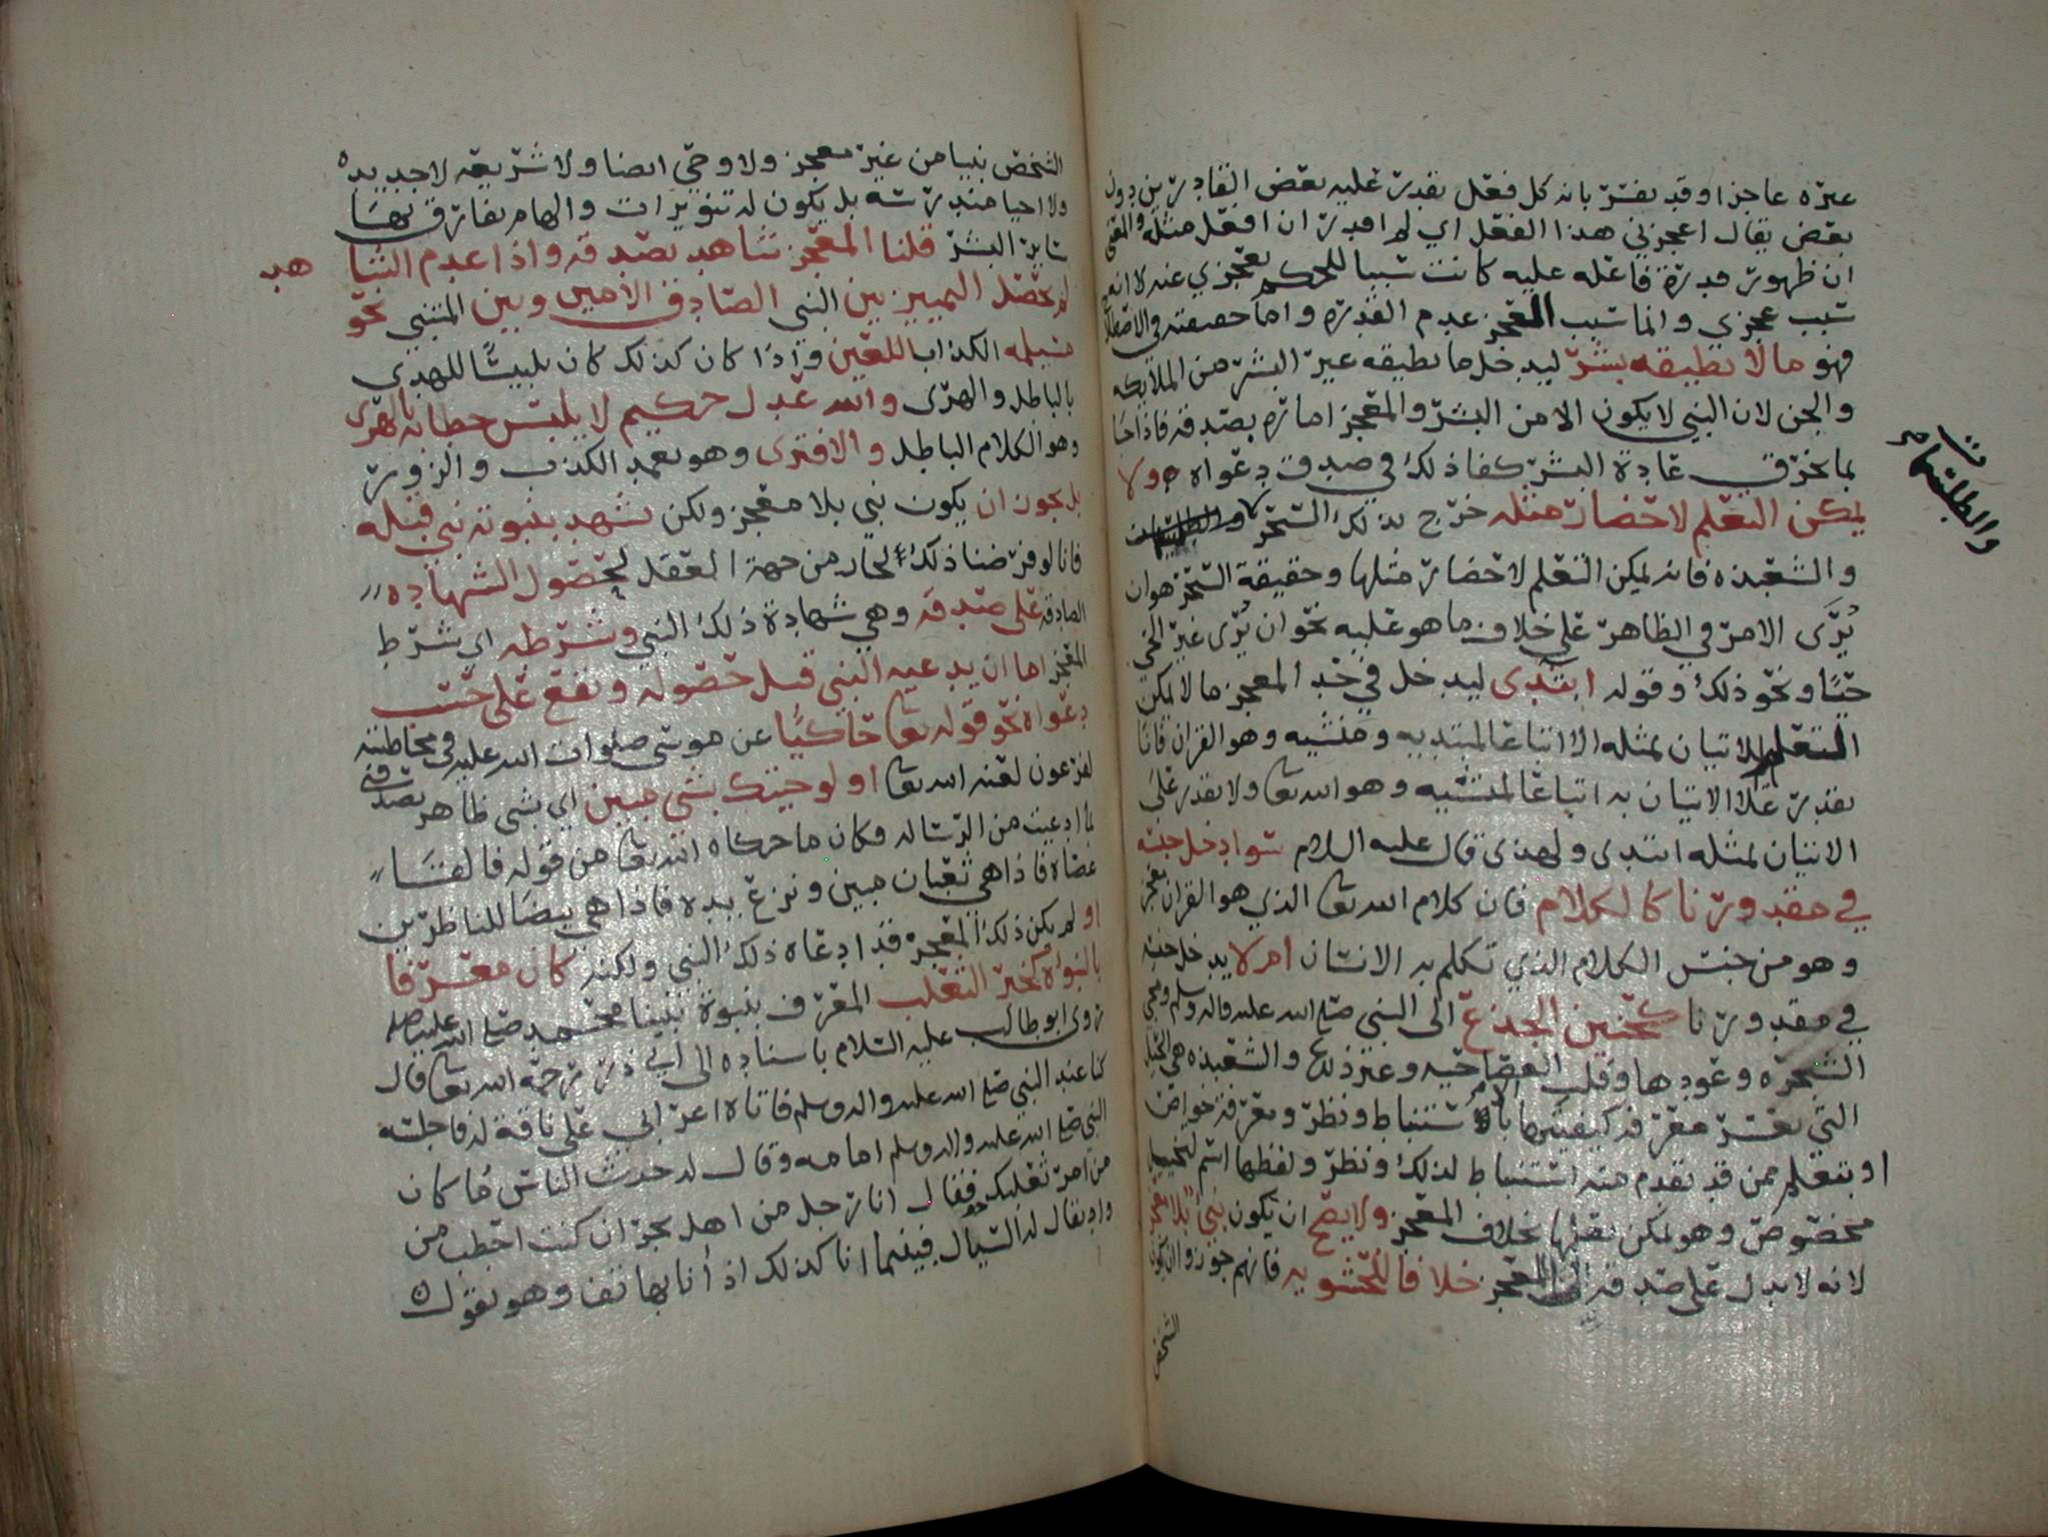 غيره عاجزا وقد يفسر بانه كل فعل يقدر عليه بعض القادرين دون
بعض يقال اعجزني هذا الفعل اي لم اقدر ان افعل مثله والمعنى
ان ظهور قدرة فاعله عليه كانت سببا للحكم بعجزي عنه لا انه
سبب عجزي وانما سبب العجز عدم القدرة واما حقيقته في الاصطلاح
فهو ما لا يطيقه بشر ليدخل ما يطيقه غير البشر من الملايكه
والجن لان النبي لا يكون الا من البشر والمعجز امارة بصدقه فاذا جا
بما يخرق عادة البشر كفا ذلك في صدق دعواه ولا
يمكن التعلم لاحضار مثله خرج بذلك السحر
والطلسمات
والشعبذه فانه يمكن التعلم لاحضار مثلها وحقيقة السحر هو ان
يُرَى الامر في الظاهر على خلاف ما هو عليه نحو ان يُرى غير الحي
حيًا ونحو ذلك وقوله ابتدى ليدخل في حد المعجز ما لا يمكن
التعلم للاتيان بمثله الا اتباعا لمبتديه ومنشيه وهو القران فانا
نقدر على الاتيان به اتباعا لمنشيه وهو الله تعا ولا نقدر على
الاتيان بمثله ابتدى ولهذى قال عليه السلام سوا دخل جنسه
في مقدورنا كالكلام فان كلام الله تعا الذي هو القران معجز
وهو من جنس الكلام الذي تكلم به الانسان ام لا يدخل جنسه
في مقدورنا كحنين الجذع الى النبي صلى الله عليه واله وسلم ومجي
الشجره وعودها وقلب العصا حيه وغير ذلك والشعبذه هي الحيل
التي يعسر معرفة كيفيتها باستنباط ونظر ومعرفة خواص
او بتعلم ممن قد تقدم منه استنباط لذلك ونظر ولفظها اسم لتخييل
مخصوص وهو يمكن تعلمها بخلاف المعجز ولا يصح ان يكون نبي بلا معجز
لانه لا يدل على صدقه الا المعجز خلافا للحشويه فانهم جوزوا ان يكون
الشخص
الشخص نبيا من غير معجز ولا وحي ايضا ولا شريعه لا جديده
ولا احيا مندرسه بل يكون له تنويرات والهام يفارق بهما
ساير البشر قلنا المعجز شاهد بصدقه واذا عدم الشا هد
لم يحصل التمييز بين النبي الصادق الامين وبين المتنبي نحو
مسيلمه الكذاب اللعين واذا كان كذلك كان تلبيسًا للهدي
بالباطل والهزى والله عدل حكيم لا يلبس خطابه بالهزى
وهو الكلام الباطل والافترى وهو تعمد الكذب والزور
بل يجوز ان يكون نبي بلا معجز ولكن يشهد بنبوته نبي قبله
فانا لو فرضنا ذلك لجاز من جهة العقل لحصول الشهاده
الصادقه على صدقه وهي شهادة ذلك النبي وشرطه اي شرط
المعجز اما ان يدعيه النبي قبل حصوله ويقع على حسب
دعواه نحو قوله تعا حاكيًا عن موسى صلوات الله عليه في مخاطبته
لفرعون لعنه الله تعا اولو جيتك بشي مبين اي بشي ظاهر يصدقني
لما ادعيت من الرساله فكان ما حكاه الله تعا من قوله فالقا
عصاه فاذا هي ثعبان مبين ونزع يده فاذا هي بيضا للناظرين
او لم يكن ذلك المعجز قد ادعاه ذلك النبي ولكنه كان معرفا
بالنبؤه كخبر الثعلب المعرف بنبوة نبينا محمد صلى الله عليه وسلم
روى ابو طالب عليه السلام باسناده الى ابي ذر رحمه الله تعا قال
كنا عند النبي صلى الله عليه واله وسلم فاتاه اعرابي على ناقة له فاجلسه
النبي صلى الله عليه واله وسلم امامه وقال له حدث الناس ما كان
من امر ثعلبك فقال انا رجل من اهل نجران كنت احتطب من
واد يقال له السيال فبينما انا كذلك اذ أنا بهاتف وهو يقول